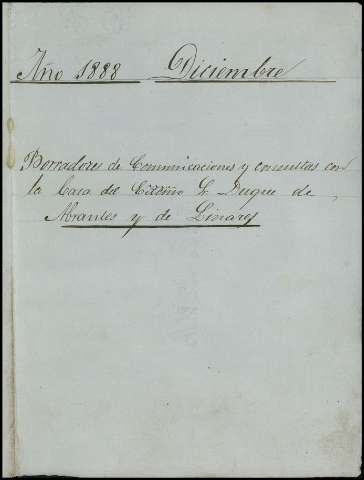 Año 1888 Diciembre
Borradores de Comunicaciones y consultas con
la Casa del Excmo Sr Duque de
Abrantes y de Linares